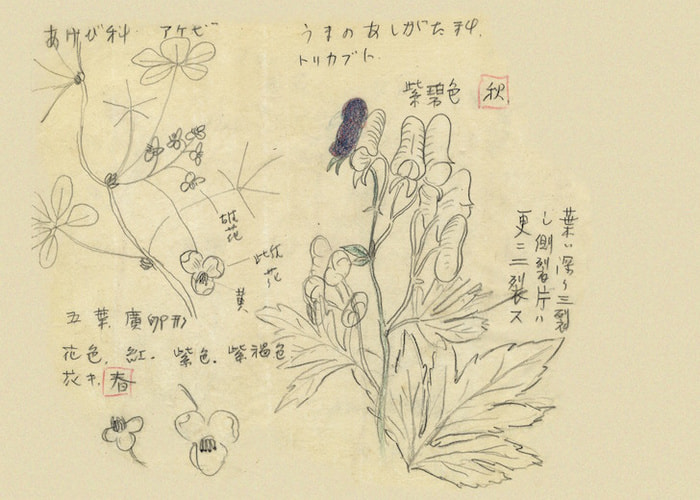 あけび科 アケビ
雄花
雌花
黄
五葉 廣卵形
花色. 紅. 紫色. 紫褐色
花キ. 春
うまのあしがた科.
トリカブト.
紫碧色 秋
葉ハ深ク三裂
し側裂片ハ
更ニ二裂ス